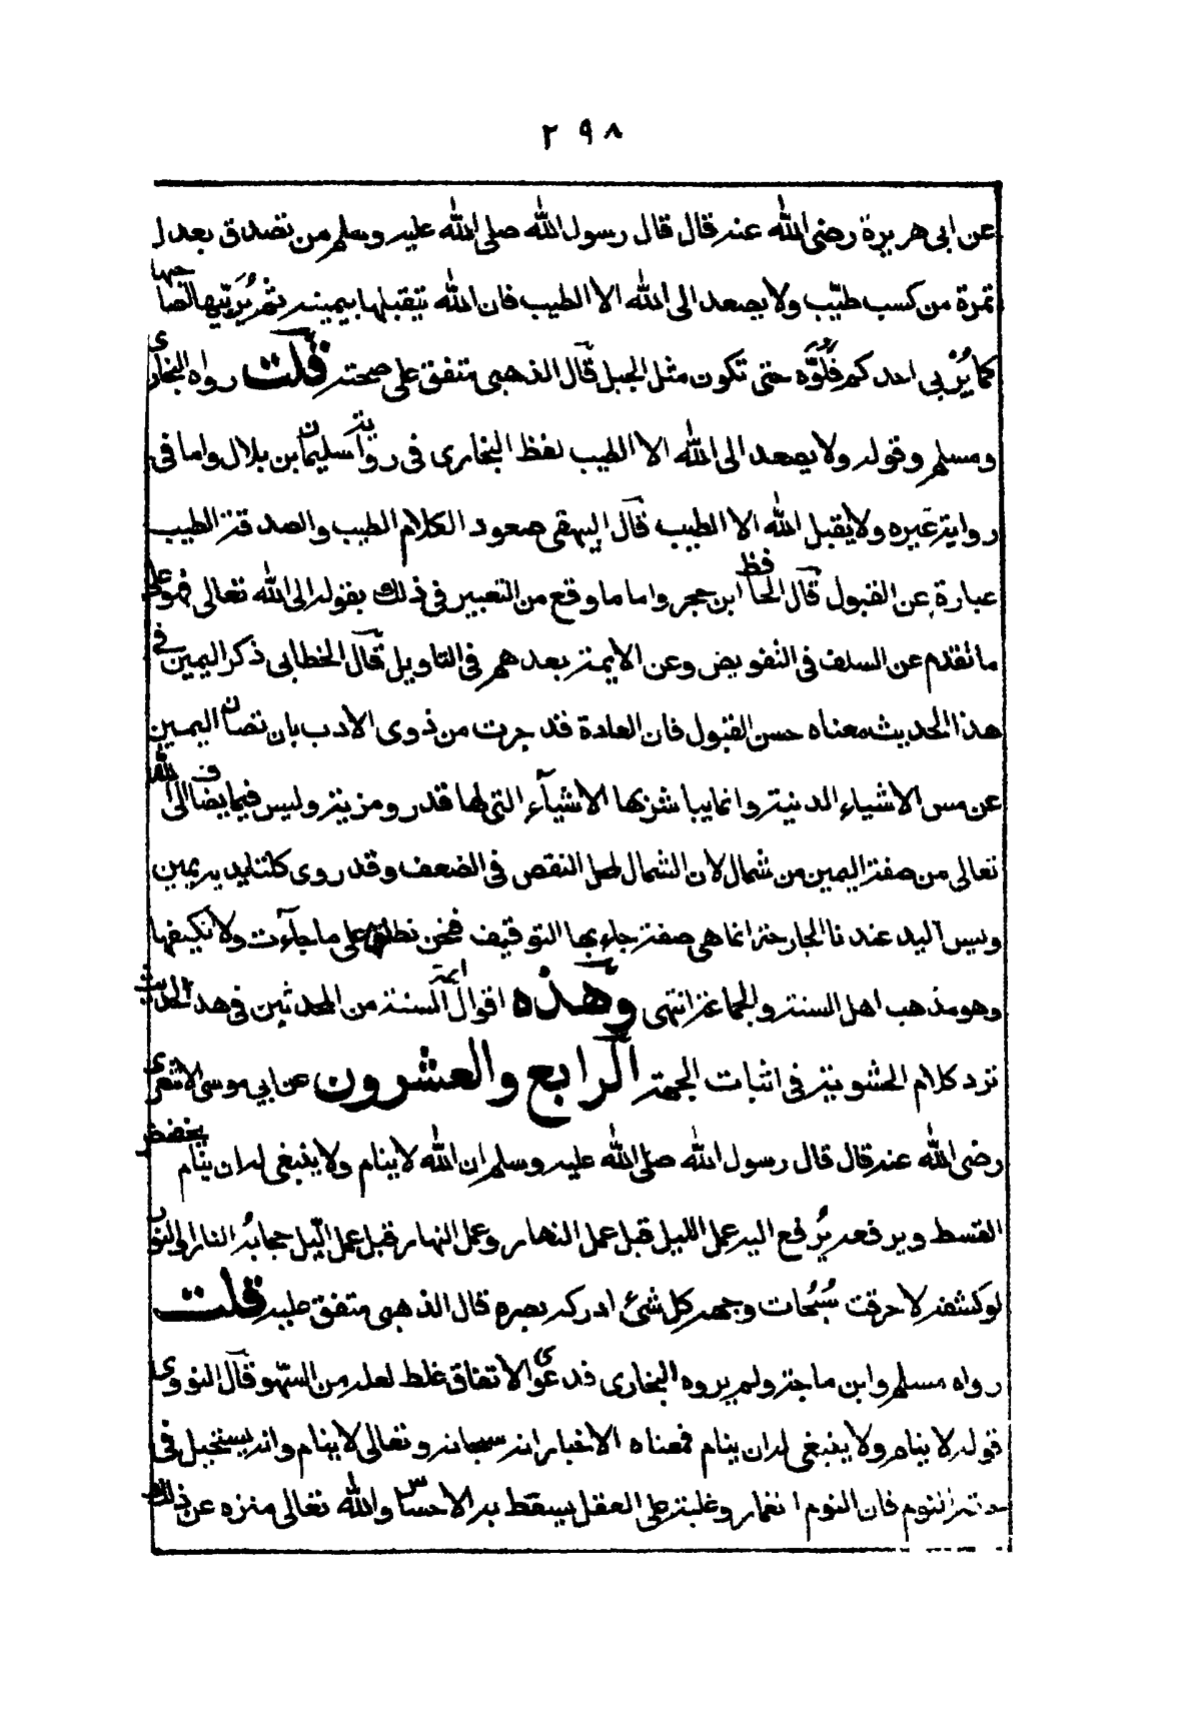 ٢٩٨
عن ابى هريرة رضى الله عنه قال قال رسول الله صلى الله عليه وسلم من تصدق بعدل
تمرة من كسب طيّب ولا يصعد الى الله الا الطيب فان الله يتقبلها بيمينه ثم يُرَبّيها لصاحبها
كما يُرْبى احدكم فُلُوَّه حتى تكون مثل الجبل قال الذهبى متفق على صحته قلت رواه البخارى
ومسلم وقوله ولا يصعد الى الله الا الطيب لفظ البخارى فى رواية سليمان بن بلال واما فى
رواية غيره ولا يقبل الله الا الطيب قال البيهقى صعود الكلام الطيب والصدقة الطيب
عبارة عن القبول قال الحافظ ابن حجر واما ما وقع من التعبير فى ذلك بقوله الى الله تعالى فهو على
ما تقدم عن السلف فى التفويض وعن الايمة بعدهم فى التاويل قال الخطابى ذكر اليمين فى
هذا الحديث معناه حسن القبول فان العادة قد جرت من ذوى الادب بان تصان اليمين
عن مس الاشياء الدنية وانما يباشر بها الاشيآء التى لها قدر ومزية وليس فيما يضاف الى الله
تعالى من صفة اليمين من شمال لان الشمال لمحل النقص فى الضعف وقد روى كلتا يديه يمين
وليس اليد عندنا الجارحة انما هى صفة جاء بها التوقيف فنحن نطلقها على ما جاءت ولا نكيفها
وهو مذهب اهل السنة والجماعة انتهى وهذه اقوال ايمة السنة من المحدثين فى هذ الحديث
ترد كلام الحشوية فى اثبات الجهة الرابع والعشرون عن ابي موسى الاشعرى
رضى الله عنه قال قال رسول الله صلى الله عليه وسلم ان الله لا ينام ولا ينبغى له ان ينام يخفض
القسط ويرفعه يُرفع اليه عمل الليل قبل عمل النهار وعمل النهار قبل عمل الّيل حجابهُ النار او النور
لو كشفه لاحرقت سُبُحات وجهه كل شئ ادركه بصره قال الذهبى متفق عليه قلت
رواه مسلم وابن ماجة ولم يروه البخارى فدعوى الاتفاق غلط لعله من السّهو قال النووى
قوله لا ينام ولا ينبغى له ان ينام فمعناه الاخبار انه سبحانه وتعالى لا ينام وانه يستحيل فى
حقه النوم فان النوم انغمار وغلبة على العقل يسقط به الاحساس والله تعالى منزه عن ذلك